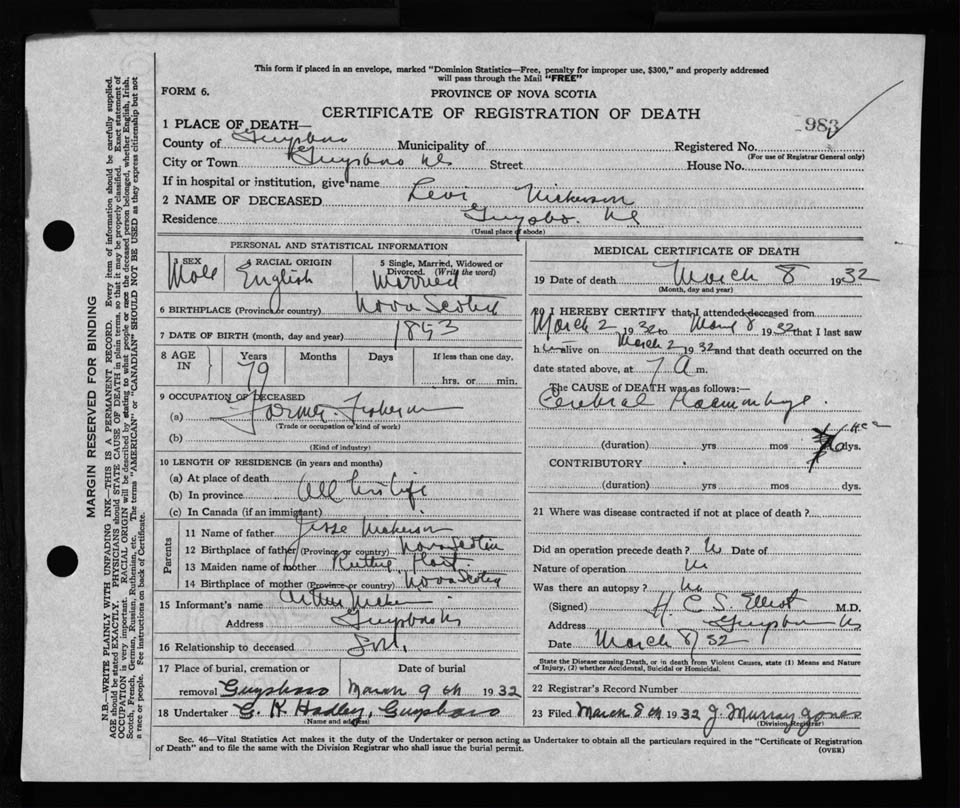 This form if placed in an envelope, marked "Dominion Statistics—Free, penalty for improper use, $300," and properly addressed
will pass through the Mail "FREE"
FORM 6.
PROVINCE OF NOVA SCOTIA
CERTIFICATE OF REGISTRATION OF DEATH
983
1 PLACE OF DEATH—
County of Guysboro Municipality of Registered No.
(For use of Registrar General only)
City or Town Guysboro NS Street House No.
If in hospital or institution, give name
2 NAME OF DECEASED Levi Nickerson
Residence Guysbo. NS
(Usual place of abode)
PERSONAL AND STATISTICAL INFORMATION
3 SEX 4 RACIAL ORIGIN 5 Single, Married, Widowed or
Divorced. (Write the word)
Male English Married
6 BIRTHPLACE (Province or country) Nova Scotia
7 DATE OF BIRTH (month, day and year) 1853
8 AGE IN Years Months Days If less than one day,
79 hrs. or min.
9 OCCUPATION OF DECEASED
(a) Farmer Fisherman
(Trade or occupation or kind of work)
(b)
(Kind of industry)
10 LENGTH OF RESIDENCE (in years and months)
(a) At place of death
(b) In province All his life
(c) In Canada (if an immigrant)
Parents
11 Name of father Jesse Nickerson
12 Birthplace of father (Province or country) Nova Scotia
13 Maiden name of mother Hart
14 Birthplace of mother (Province or country) Nova Scotia
15 Informant's name Arthur
Address Guysboro NS
16 Relationship to deceased Son.
17 Place of burial, cremation or Date of burial
removal Guysboro March 9th 1932
18 Undertaker G. K Hadley, Guysboro
(Name and address)
MEDICAL CERTIFICATE OF DEATH
19 Date of death March 8 1932
(Month, day and year)
20 I HEREBY CERTIFY that I attended deceased from
March 2 1932 to March 8 1932 that I last saw
him alive on March 2 1932 and that death occurred on the
date stated above, at 7 A m.
The CAUSE of DEATH was as follows:—
Cerebral Haemorrhage
(duration) yrs mos dys.
CONTRIBUTORY
(duration) yrs mos dys.
21 Where was disease contracted if not at place of death?
Did an operation precede death? Date of
Nature of operation
Was there an autopsy? No
(Signed) H. C S. Elliot M.D.
Address Guysboro NS
Date March 8/32
State the Disease causing Death, or in death from Violent Causes, state (1) Means and Nature
of Injury, (2) whether Accidental, Suicidal or Homicidal.
22 Registrar's Record Number
23 Filed March 8th 1932 J. Murray Jones
(Division Registrar)
Sec. 46—Vital Statistics Act makes it the duty of the Undertaker or person acting as Undertaker to obtain all the particulars required in the "Certificate of Registration
of Death" and to file the same with the Division Registrar who shall issue the burial permit.
(OVER)
MARGIN RESERVED FOR BINDING
N.B.—WRITE PLAINLY WITH UNFADING INK—THIS IS A PERMANENT RECORD. Every item of information should be carefully supplied.
AGE should be stated EXACTLY. PHYSICIANS should STATE CAUSE OF DEATH in plain terms, so that it may be properly classified. Exact statement of
OCCUPATION is very important. RACIAL ORIGIN will be described by stating to what people or race the deceased person belonged, whether English, Irish,
Scotch, French, German, Russian, Ruthenian, etc. The terms "AMERICAN" or "CANADIAN" SHOULD NOT BE USED as they express citizenship but not
a race or people. See instructions on back of Certificate.